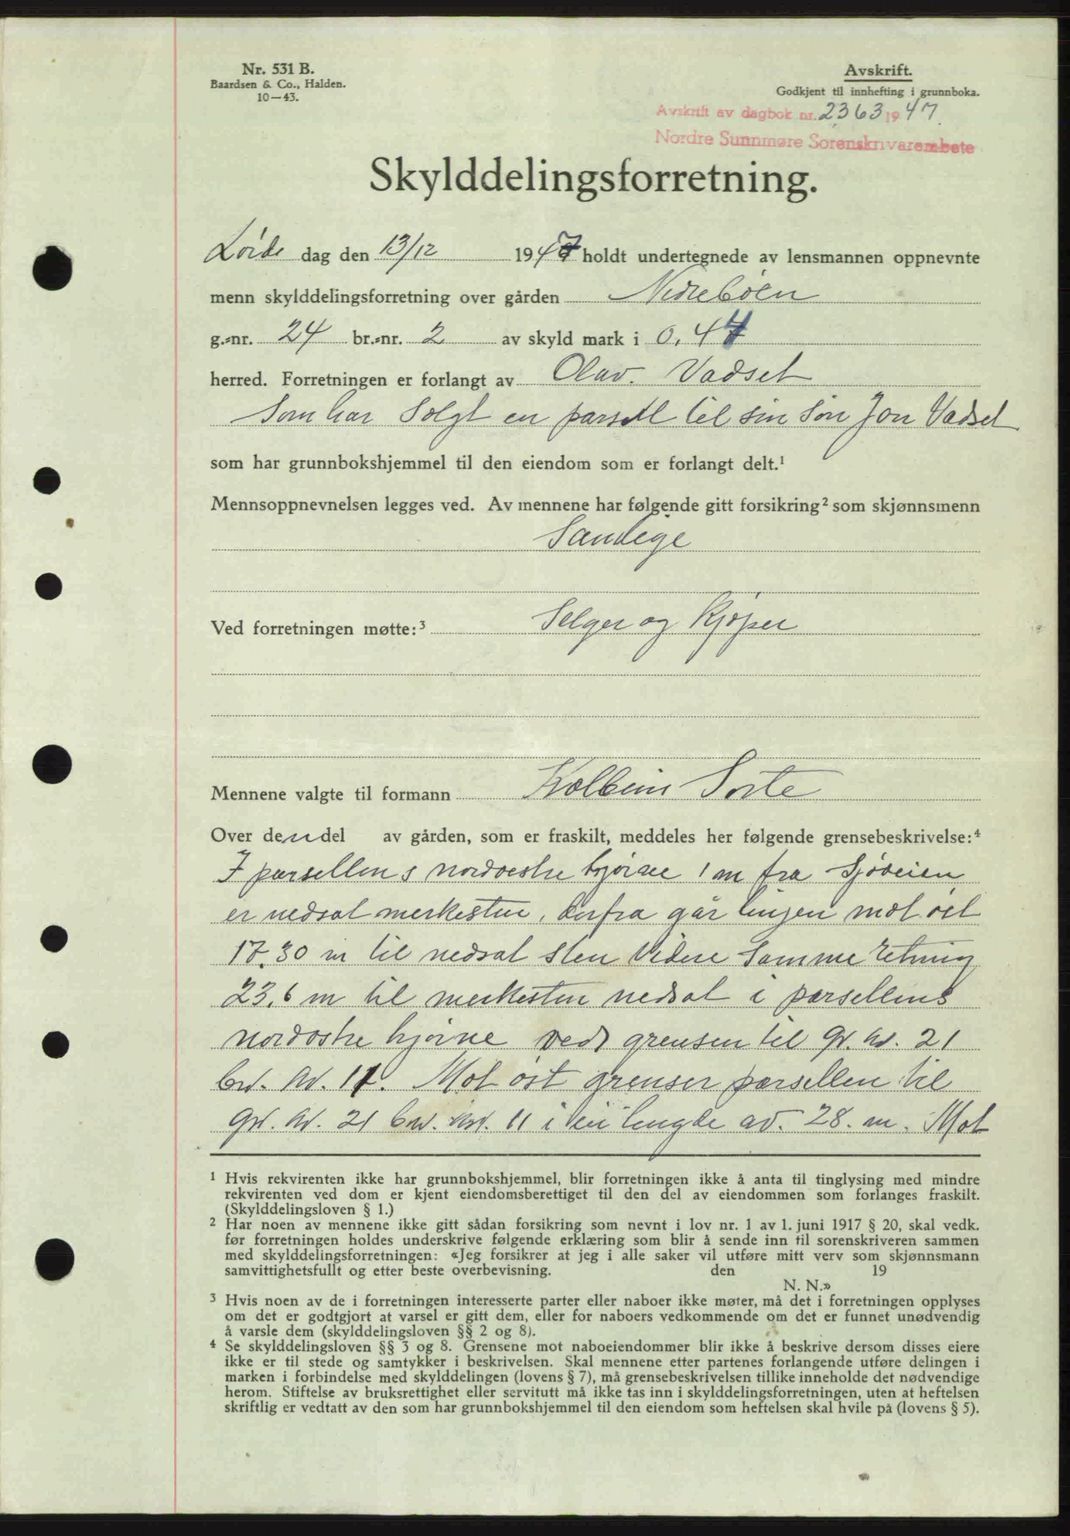 Nr. 531 B.
Baardsen & Co., Halden.
10—43.
Avskrift.
Godkjent til innhefting i grunnboka.
Avskrift av dagbok nr. 2363 1947.
Nordre Sunnmøre Sorenskriverembete
Skylddelingsforretning.
dag den 13/12 1947 holdt undertegnede av lensmannen oppnevnte
menn skylddelingsforretning over gården Nedrebøen
g.-nr. 24 br.-nr. 2 av skyld mark i 0,47
herred. Forretningen er forlangt av Olav. Vadset
Som har Solgt en parsell til sin Søn Jon Vadset
som har grunnbokshjemmel til den eiendom som er forlangt delt.¹
Mennsoppnevnelsen legges ved. Av mennene har følgende gitt forsikring² som skjønnsmenn
Samtlige
Ved forretningen møtte:³ Selger og Kjøper
Mennene valgte til formann Kolbein
Over den del av gården, som er fraskilt, meddeles her følgende grensebeskrivelse:⁴
I parsellens nordvestre hjørne 1 m fra Sjøveien
er nedsat merkesten, derfra går linjen mot øst
17.30 m til nedsat sten videre samme retning
23,6 m til merkesten nedsat i parsellens
nordøstre hjørne ved grensen til gr. nr. 21
br. nr. 11. Mot øst grenser parsellen til
gr. nr. 21 br. nr. 11 i en lengde av. 28. m. Mot
¹ Hvis rekvirenten ikke har grunnbokshjemmel, blir forretningen ikke å anta til tinglysing med mindre
rekvirenten ved dom er kjent eiendomsberettiget til den del av eiendommen som forlanges fraskilt.
(Skylddelingsloven § 1.)
² Har noen av mennene ikke gitt sådan forsikring som nevnt i lov nr. 1 av 1. juni 1917 § 20, skal vedk.
før forretningen holdes underskrive følgende erklæring som blir å sende inn til sorenskriveren sammen
med skylddelingsforretningen: «Jeg forsikrer at jeg i alle saker vil utføre mitt verv som skjønnsmann
samvittighetsfullt og etter beste overbevisning. den 19
N. N.»
³ Hvis noen av de i forretningen interesserte parter eller naboer ikke møter, må det i forretningen opplyses
om det er godtgjort at varsel er gitt dem, eller for naboers vedkommende om det er funnet unødvendig
å varsle dem (skylddelingsloven §§ 2 og 8).
⁴ Se skylddelingsloven §§ 3 og 8. Grensene mot naboeiendommer blir ikke å beskrive dersom disses eiere
ikke er til stede og samtykker i beskrivelsen. Skal mennene etter partenes forlangende utføre delingen i
marken i forbindelse med skylddelingen (lovens § 7), må grensebeskrivelsen tillike inneholde det nødvendige
herom. Stiftelse av bruksrettighet eller servitutt må ikke tas inn i skylddelingsforretningen, uten at heftelsen
skriftlig er vedtatt av den som har grunnbokshjemmel til den eiendom som heftelsen skal hvile på (lovens § 5).